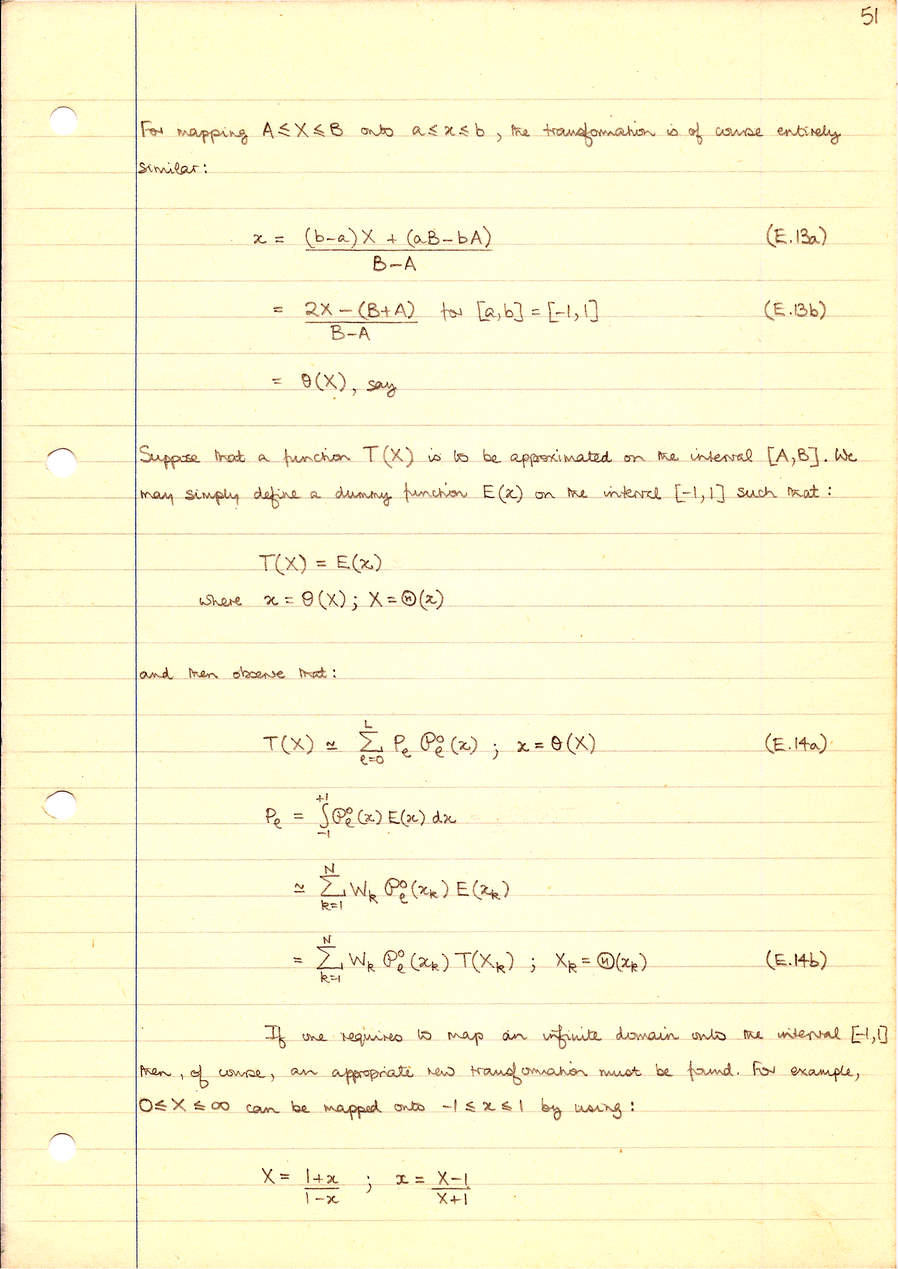 51
For mapping A≤X≤B onto a≤x≤b, the transformation is of course entirely
similar:
x = ((b-a)X + (aB-bA))/(B-A) (E.13a)
= (2X-(B+A))/(B-A) for [a,b] = [-1,1] (E.13b)
= θ(X), say
Suppose that a function T(X) is to be approximated on the interval [A,B]. We
may simply define a dummy function E(x) on the interval [-1,1] such that:
T(X) = E(x)
where x = θ(X); X = Θ(x)
and then observe that:
T(X) ≃ ∑_{ℓ=0}^{L} P_ℓ 𝒫_ℓ^0(x) ; x = θ(X) (E.14a)
P_ℓ = ∫_{-1}^{+1} 𝒫_ℓ^0(x) E(x) dx
≃ ∑_{k=1}^{N} W_k 𝒫_ℓ^0(x_k) E(x_k)
= ∑_{k=1}^{N} W_k 𝒫_ℓ^0(x_k) T(X_k) ; X_k = Θ(x_k) (E.14b)
If one requires to map an infinite domain onto the interval [-1,1]
then, of course, an appropriate new transformation must be found. For example,
0≤X≤∞ can be mapped onto -1≤x≤1 by using:
X = (1+x)/(1-x) ; x = (X-1)/(X+1)